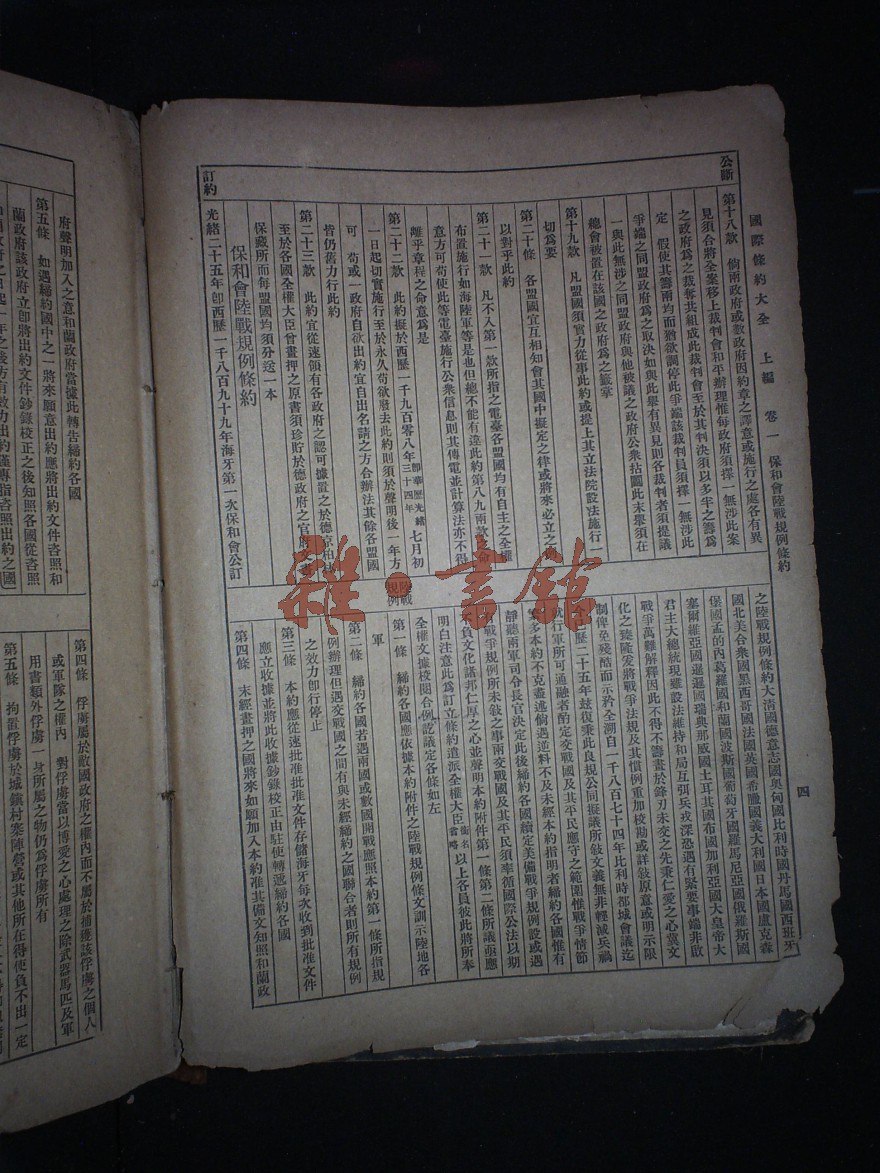 國際條約大全 上編 卷一 保和會陸戰規例條約
四
公斷
第十八款 倘兩政府或數政府因約章之譯意或施行之處各有異
見須合將全案移上裁判會和平辦理惟每政府須擇一無涉此案
之政府為之裁奪共組成此裁判會至於其判決須以多半之籌為
定 假使其籌兩均而猶欲調停此爭端該裁判員須擇一無涉此
爭端之同盟政府為之取決如與此舉有異見則各裁判者須提議
一與此無涉之同盟政府與他被議之政府公衆拈鬮此末舉須在
總會被置在該國之政府為之籤掌
第十九款 凡盟國須實力從事此約或提上其立法院設法施行一
切為要
第二十條 各盟國宜互相知會其國中擬定之律或將來必立之
以對乎此約
第二十一款 凡不入第一款所指之電臺各盟國均有自主之全權
布置施行如海陸軍等是也但總不能有違此約第八九兩款
意方可苟使此等電臺施行公衆信息則其傳電並計算法亦不得
離乎章程之命意為是
第二十二款 此約擬於西歷一千九百零八年卽華歷光緒三十四年七月初
一日起切實施行至於永久苟欲廢去此約則須於聲明後一年方
可 苟或一政府自欲出約宜自出名請之方合辦法其餘各盟國
皆仍舊力行此約
第二十三款 此約宜從速領有各政府之認可據置之於德京柏
至於各國全權大臣曾畫押之原書須珍貯於德政府之官
保藏所而每盟國均須分送一本
保和會陸戰規例條約
訂約
光緒二十五年卽西歷一千八百九十九年海牙第一次保和會公訂
陸戰規例
之陸戰規例條約大清國德意志國奧匈國比利時國丹馬國西班牙
國北美合衆國墨西哥國法國英國希臘國義大利國日本國盧克森
堡國孟的內葛羅國和蘭國波斯國葡萄牙國羅馬尼亞國俄羅斯國
塞爾維亞國暹邏國瑞典那威國土耳其國布國加利亞國大皇帝大
君主大總統現雖設法維持和局互弭兵戎深恐遇有緊要事端非啟
戰爭萬難解釋因此不得不籌畫於鋒刃未交之先秉仁愛之心冀文
化之臻隆爰將戰爭法規及其慣例重加校勘或詳敍原意或明示限
制俾至殘酷而示矜全溯自一千八百七十四年比利時都城會議迄
今已歷二十五年玆復秉此良規公同擬議所敍文義無非輕減兵禍
就行軍所可通融者酌定交戰國及其平民應守之範圍惟戰爭情節
繁多本約不克盡述倘遇逆料不及未經本約指明者締約各國惟有
靜聽兩軍司令長官決定此後締約各國續定美備戰爭規例設或遇
有戰爭規例所未敍之事兩交戰國及其平民須率循國際公法以期
不負文化諸邦仁厚之心並聲明本約附件第一條第二條所議亟應
明白注意此為訂立條約遣派全權大臣銜名畧以上各員彼此將所奉
全權文據校閱合例訖議定各條如左
第一條 締約各國應依據本約附件之陸戰規例條文訓示陸地各
軍
第二條 締約各國若遇兩國或數國開戰應照本約第一條所指規
例辦理但遇交戰國之間有與未經締約之國聯合者則所有規例
之效力卽行停止
第三條 本約應從速批准批准文件存儲海牙每次收到批准文件
應立收據並將此收據鈔錄校正由駐使轉遞締約各國
第四條 末經畫押之國將來如願加入本約准其備文知照和蘭政
府聲明加入之意和蘭政府當據此轉告締約各國
第五條 如遇締約國中之一將來願意出約應將出約文件咨照和
蘭政府該政府立卽將出約文件鈔錄校正之後知照各國從咨照
第四條 俘虜屬於敵國政府之權內而不屬於捕獲該俘虜之個人
或軍隊之權內 對俘虜當以博愛之心處理之除武器馬匹及軍
用書類外俘虜一身所屬之物仍為俘虜所有
第五條 拘置俘虜於城鎭村寨陣營或其他所在得使負不出一定
雜·書館